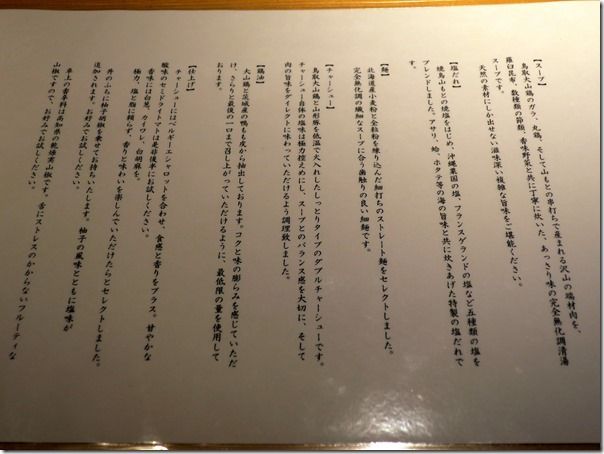 【スープ】
鳥取大山鶏のガラ、丸鶏、そして山もとの串打ちで産まれる沢山の端材肉を、
羅臼昆布、数種類の節類、香味野菜と共に丁寧に炊いた、あっさり味の完全無化調清湯
スープです。
天然の素材にしか出せない滋味深い複雑な旨味をご堪能ください。
【塩だれ】
焼鳥山もとの焼塩をはじめ、沖縄粟国の塩、フランスゲランドの塩など五種類の塩を
ブレンドしました。アサリ、蛤、ホタテ等の海の旨味と共に炊きあげた特製の塩だれで
す。
【麺】
北海道産小麦粉と全粒粉を練り込んだ細打ちのストレート麺をセレクトしました。
完全無化調の繊細なスープに合う歯触りの良い細麺です。
【チャーシュー】
鳥取大山鶏と山形豚を低温で火入れしたしっとりタイプのダブルチャーシューです。
チャーシュー自体の塩味は極力控えめにし、スープとのバランス感を大切に、そして
肉の旨味をダイレクトに味わっていただけるよう調理致しました。
【鶏油】
大山鶏と茨城産の鴨もも皮から抽出しております。コクと味の膨らみを感じていただ
け、さらりと最後の一口まで召し上がっていただけるように、最低限の量を使用して
おります。
【仕上げ】
チャーシューにはベルギーエシャロットを合わせ、食感と香りをプラス。甘やかな
酸味のセミドライトマトは是非後半にお試しください。
香味には白葱、カイワレ、白胡麻を。
極力、塩と脂に頼らず、香りと味わいを楽しんでいただけたらとセレクトしました。
丼のふちに柚子胡椒を乗せてお持ちいたします。柚子の風味とともに塩味が
追加されます。お好みでお試しください。
卓上の香辛料は高知県の乾燥実山椒です。舌にストレスのかからないフルーティな
山椒ですので、お好みでお試しください。